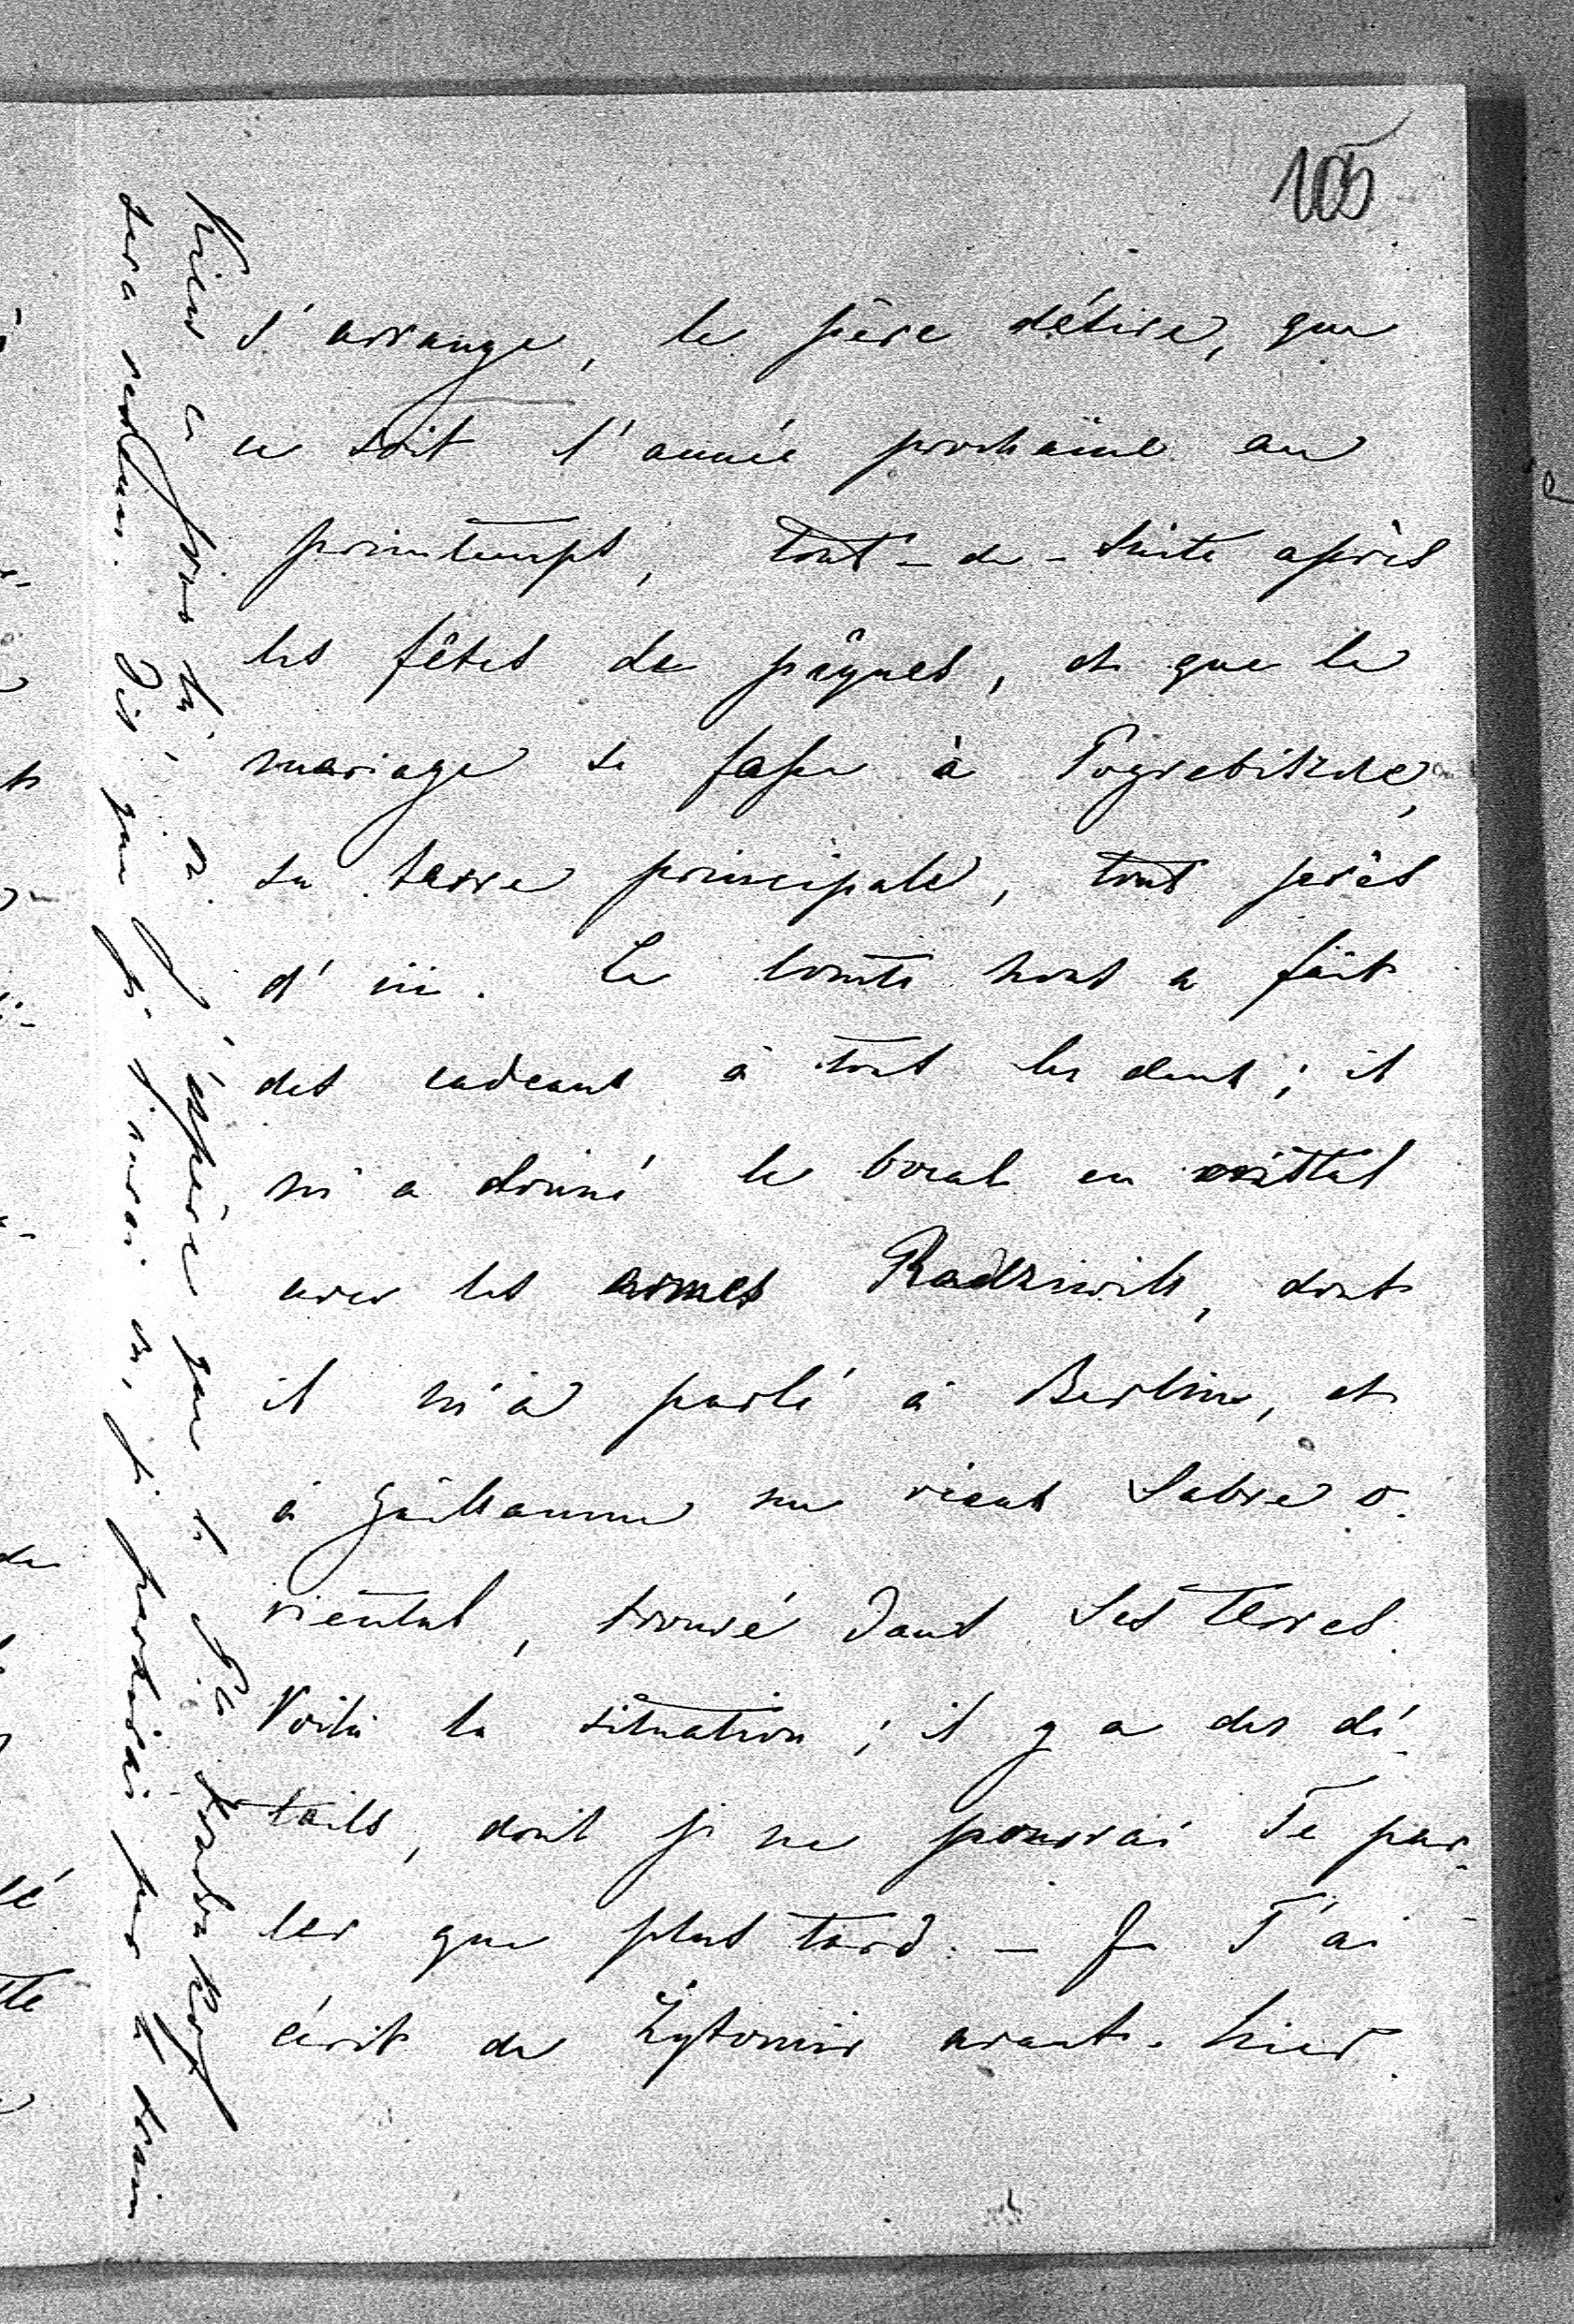 105
s'arrange, le père désire, que
ce soit l'année prochaine au
printemps, tout-de-suite après
les fêtes de pâques, et que le
mariage se fasse à Pogrebiszcze,
sa terre principale, tout près
d'ici. Le comte nous a fait
des cadeaux à tous les deux; il
m'a donné le bocal en cristal
avec les armes Radziwill, dont
il m'a parlé à Berlin, et
à Guillaume un vieux sabre o-
riental, trouvé dans ses terres.
Voilà la situation; il y a des dé-
tails, dont je ne pourrai Te par-
ler que plus tard. – Je T'ai
écrit de Żytomir avant-hier.
Kiew
j'espère que le
sera Dis que je